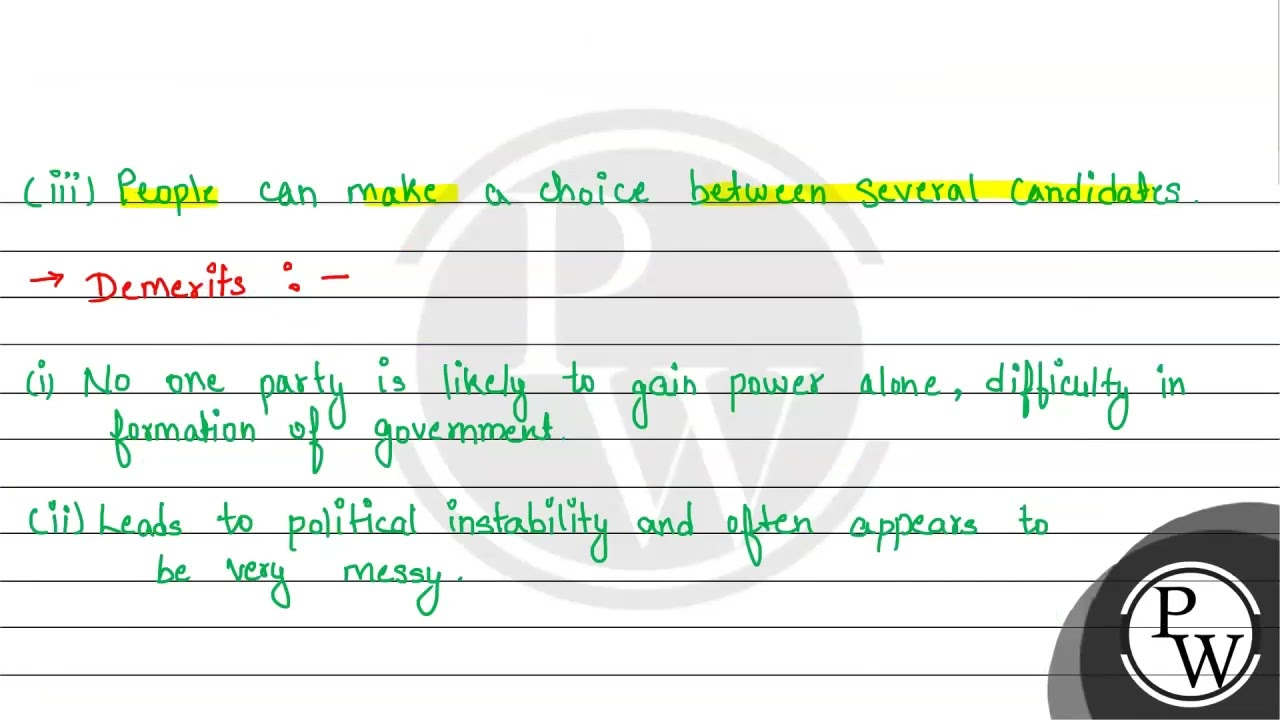 (iii) People can make a choice between several candidates.
→ Demerits : –
(i) No one party is likely to gain power alone, difficulty in
formation of government.
(ii) Leads to political instability and often appears to
be very messy.
PW
PW